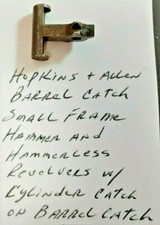 HOPKINS + ALLEN
BARREL CATCH
SMALL FRAME
HAMMER AND
HAMMERLESS
REVOLVERS W/
CYLINDER CATCH
ON BARREL CATCH